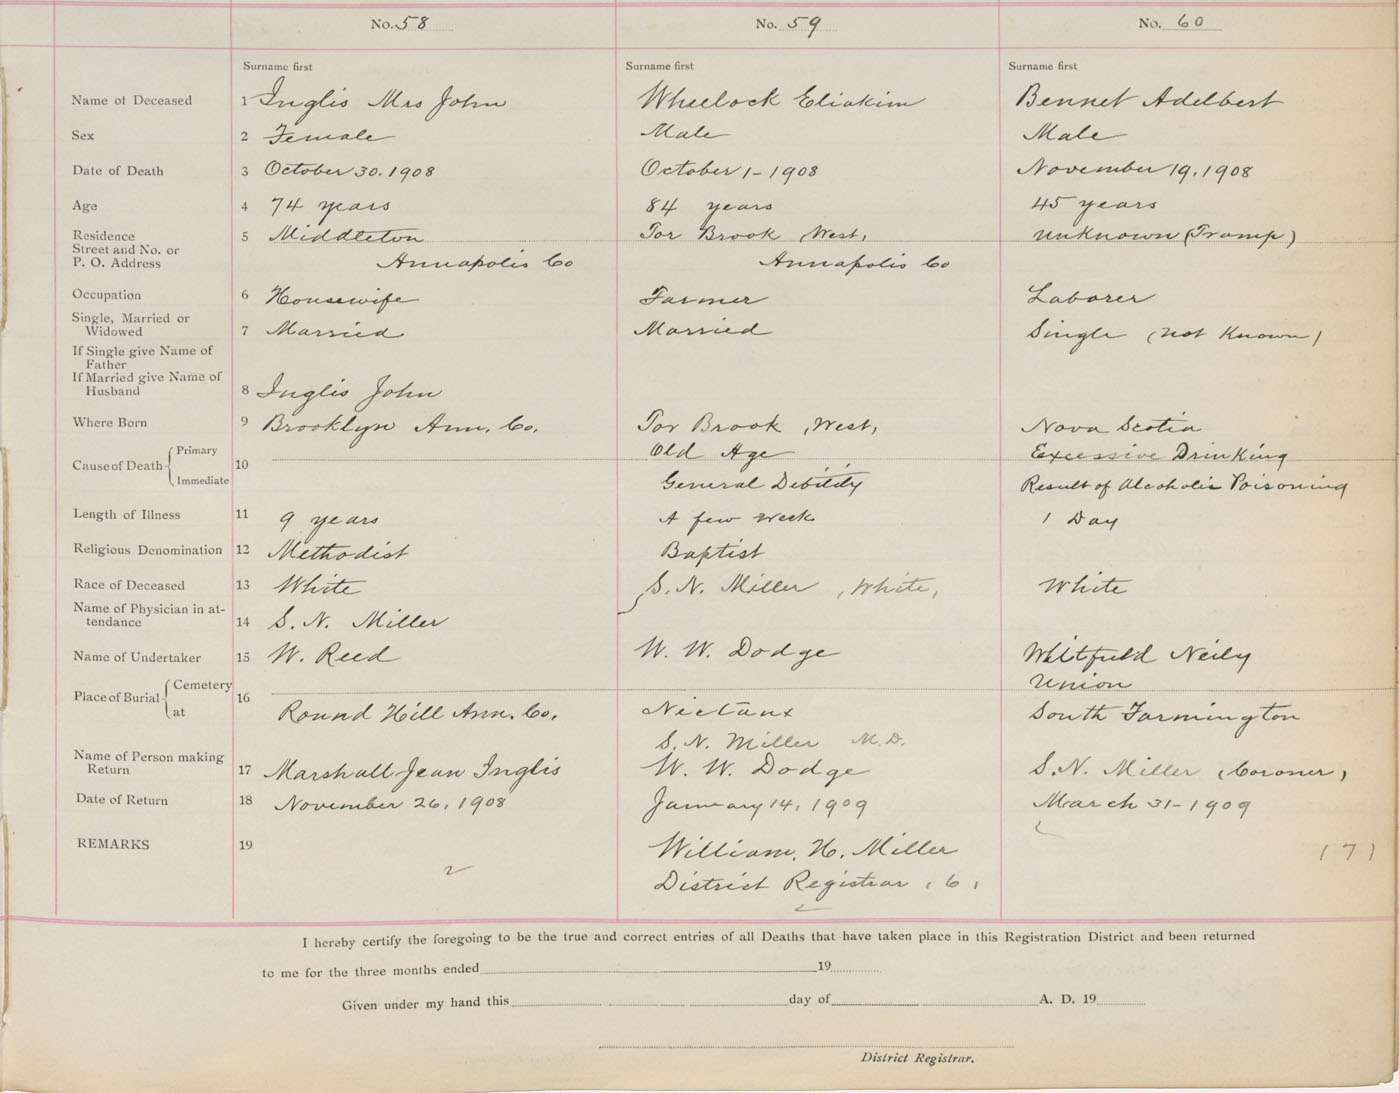 No. 58 No. 59 No. 60
Surname first Surname first Surname first
Name of Deceased 1 Inglis Mrs John Wheelock Eliakim Bennet Adelbert
Sex 2 Female Male Male
Date of Death 3 October 30, 1908 October 1 - 1908 November 19, 1908
Age 4 74 years 84 years 45 years
Residence 5 Middleton Tor Brook West, unknown (Tramp)
Street and No. or
P. O. Address Annapolis Co Annapolis Co
Occupation 6 Housewife Farmer Laborer
Single, Married or
Widowed 7 Married Married Single (not Known)
If Single give Name of
Father
If Married give Name of
Husband 8 Inglis John
Where Born 9 Brooklyn Ann. Co. Tor Brook, West, Nova Scotia
Primary Old Age Excessive Drinking
Cause of Death 10
Immediate General Debility Result of Alcoholic Poisoning
Length of Illness 11 9 years A few weeks 1 Day
Religious Denomination 12 Methodist Baptist
Race of Deceased 13 White S. N. Miller, White, White
Name of Physician in at-
tendance 14 S. N. Miller
Name of Undertaker 15 W. Reed W. W. Dodge Whitfield Neily
Cemetery Union
Place of Burial 16
at Round Hill Ann. Co. Nictaux South Farmington
S. N. Miller M.D.
Name of Person making
Return 17 Marshall Jean Inglis W. W. Dodge S. N. Miller (Coroner)
Date of Return 18 November 26, 1908 January 14, 1909 March 31 - 1909
REMARKS 19 William. H. Miller (7)
District Registrar (6)
I hereby certify the foregoing to be the true and correct entries of all Deaths that have taken place in this Registration District and been returned
to me for the three months ended 19
Given under my hand this day of A. D. 19
District Registrar.